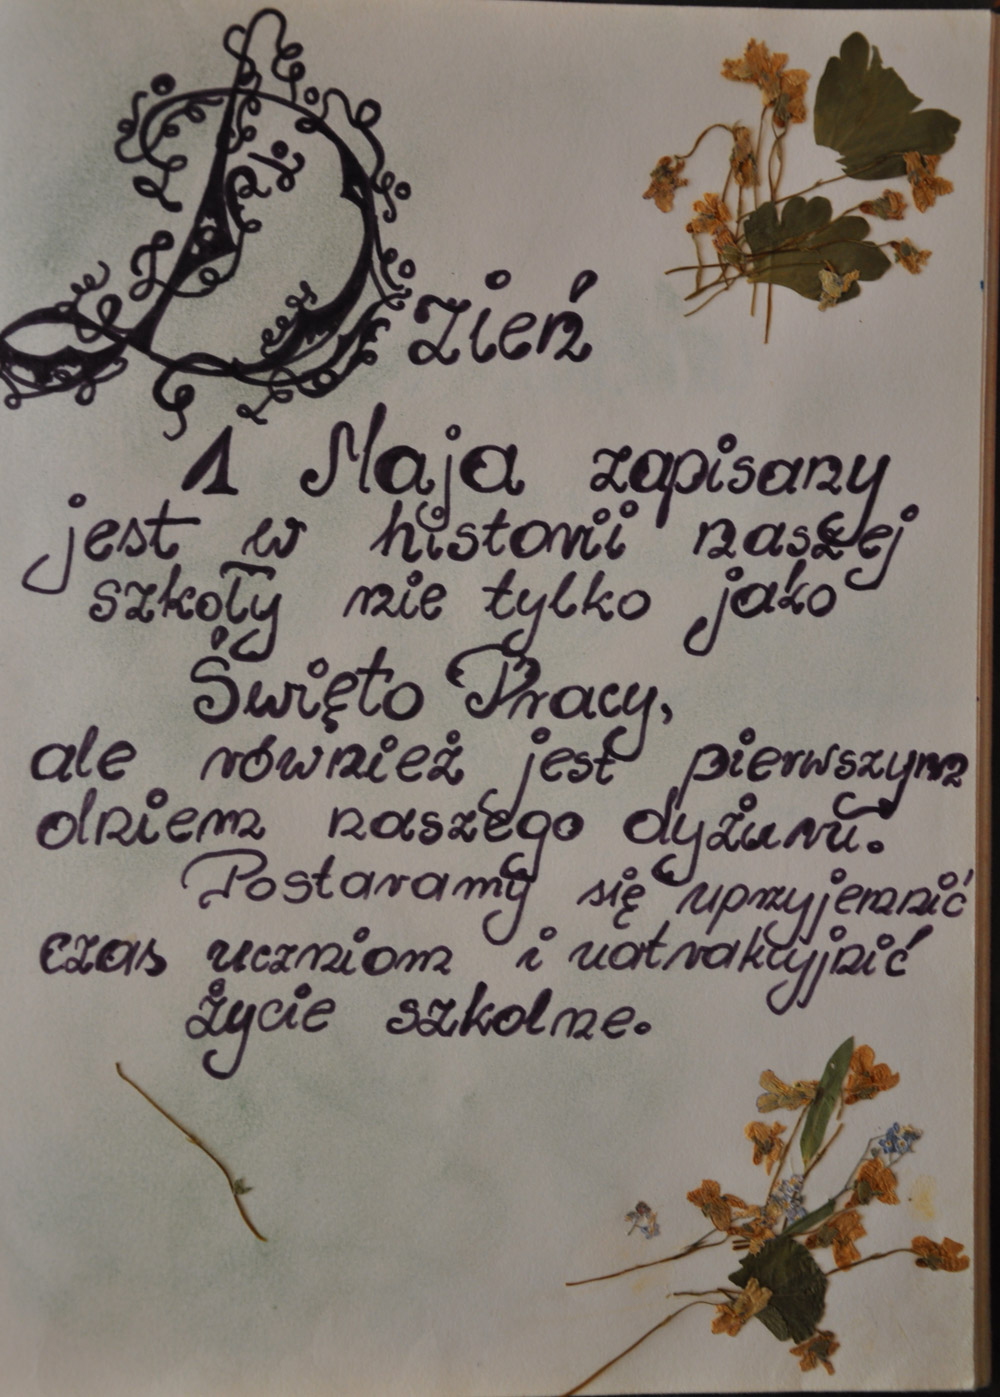 Dzień
1 Maja zapisany
jest w historii naszej
szkoły nie tylko jako
Święto Pracy,
ale również jest pierwszym
dniem naszego dyżuru.
Postaramy się uprzyjemnić
czas uczniom i uatrakcyjnić
życie szkolne.